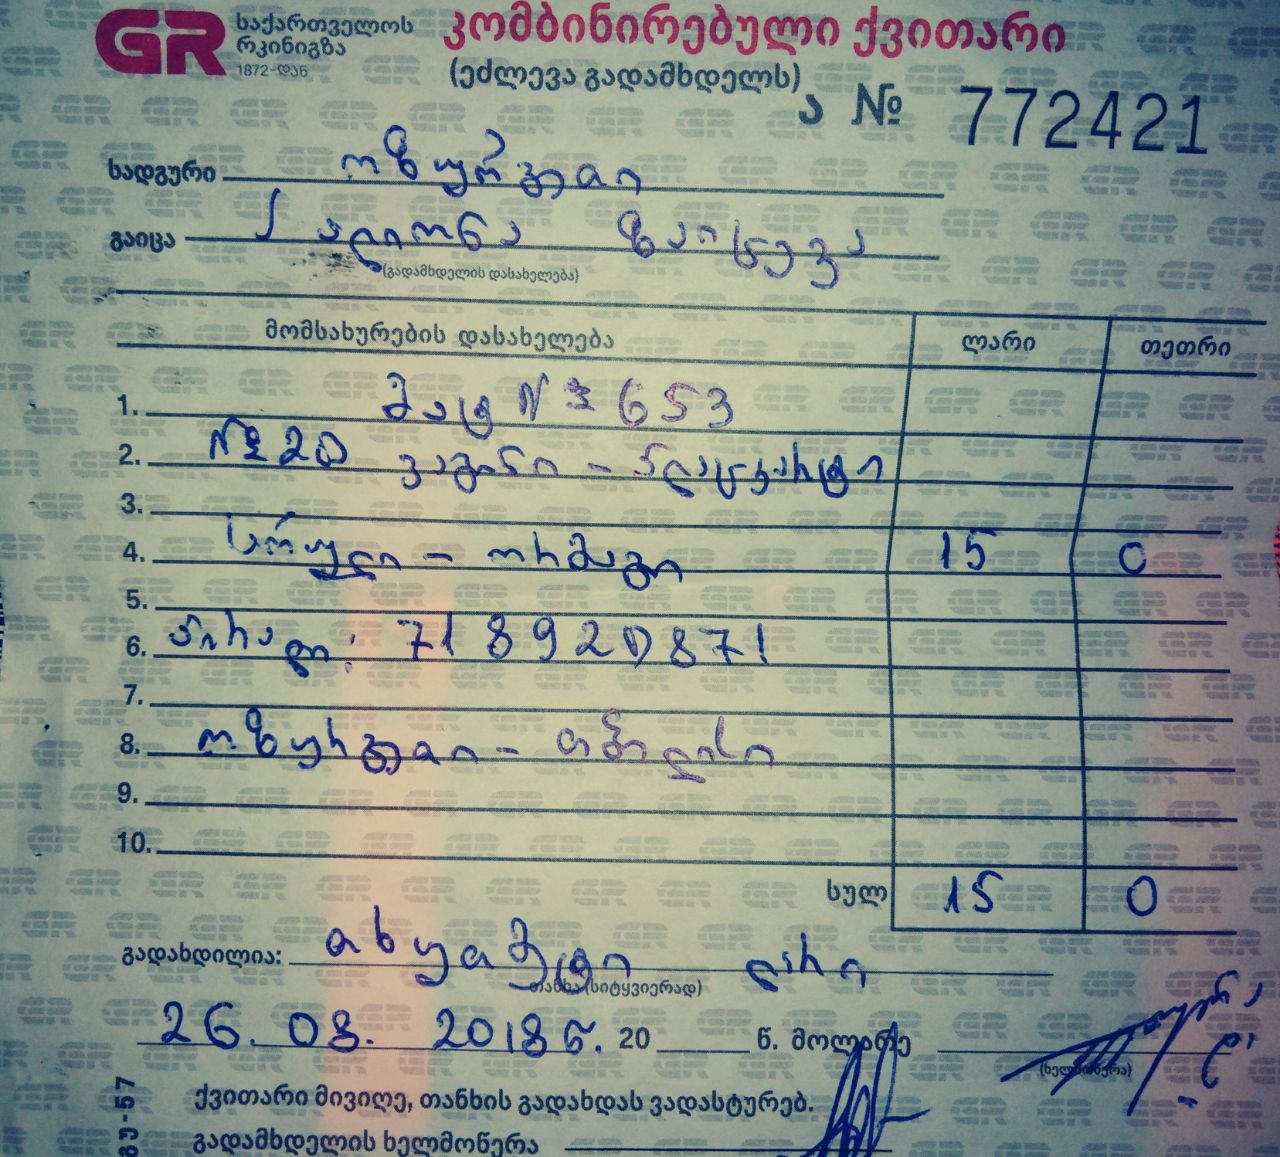 GR საქართველოს რკინიგზა 1872-დან
კომბინირებული ქვითარი
(ეძლევა გადამხდელს)
ა № 772421
სადგური ოზურგეთი
გაიცა ალიონა ზაიცევა
(გადამხდელის დასახელება)
მომსახურების დასახელება ლარი თეთრი
1. მატ № 653
2. № 20 ვაგონი - პლაცკარტი
3.
4. სრული - ორმაგი 15 0
5.
6. პირადი: 718920871
7.
8. ოზურგეთი - თბილისი
9.
10.
სულ 15 0
გადახდილია: თხუთმეტი ლარი
თანხა (სიტყვიერად)
26. 08. 2018წ. 20 წ. მოლარე
(ხელმოწერა)
ქვითარი მივიღე, თანხის გადახდას ვადასტურებ.
გადამხდელის ხელმოწერა